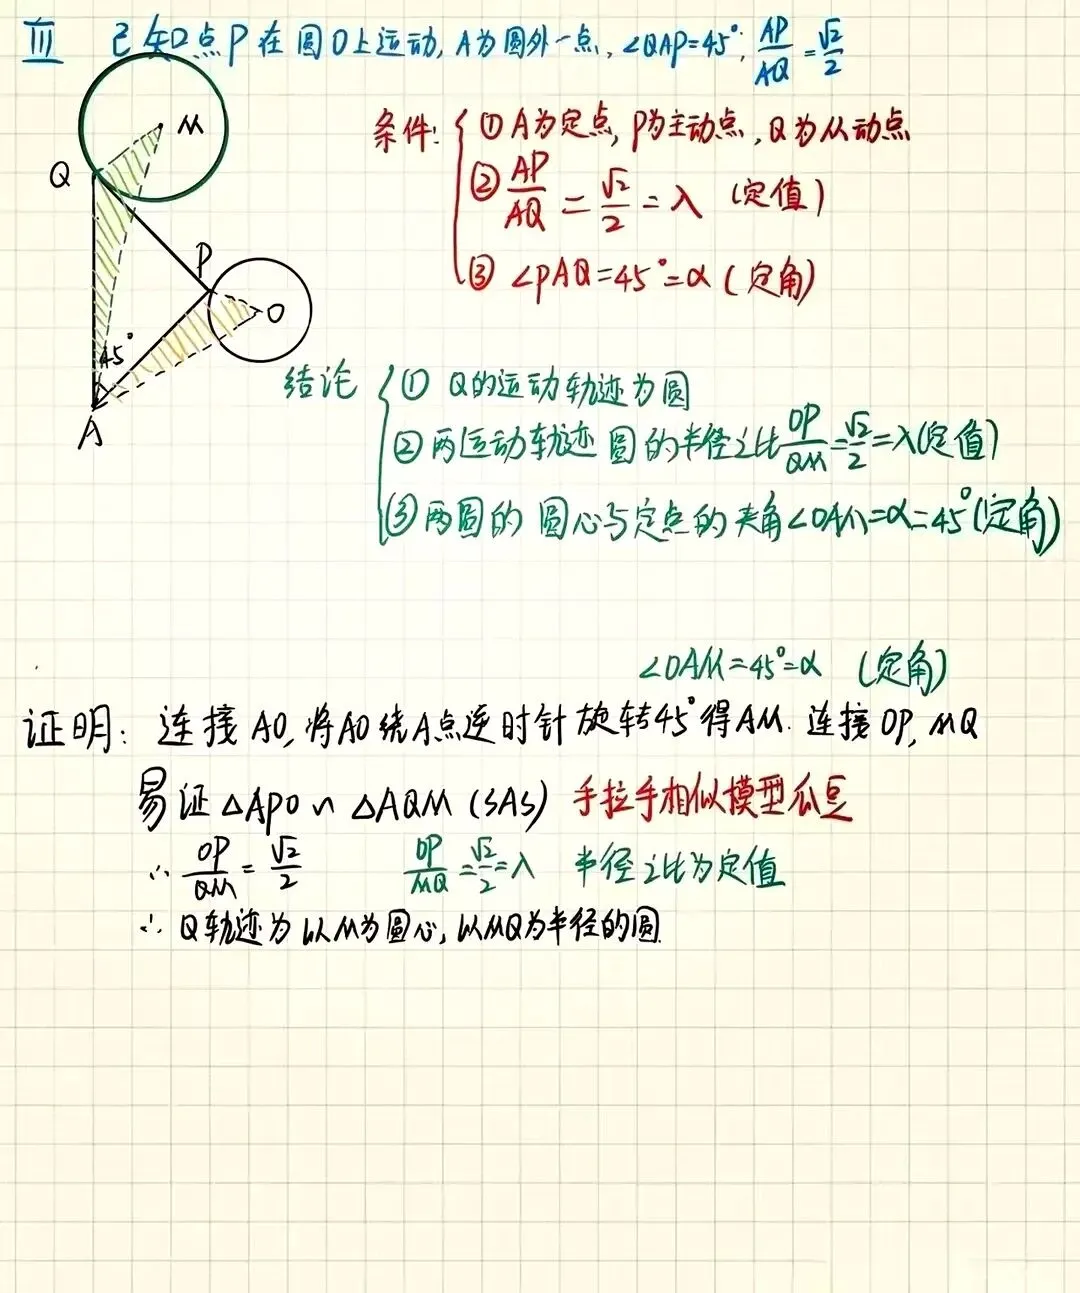 Ⅲ 已知点P在圆O上运动,A为圆外一点,∠QAP=45°,AP/AQ=√2/2
条件: ①A为定点,P为主动点,Q为从动点
②AP/AQ=√2/2=λ (定值)
③∠PAQ=45°=α(定角)
M
Q
P
O
45°
A
结论 ①Q的运动轨迹为圆
②两运动轨迹圆的半径之比OP/QM=√2/2=λ(定值)
③两圆的圆心与定点的夹角∠OAM=α=45°(定角)
∠OAM=45°=α (定角)
证明: 连接AO,将AO绕A点逆时针旋转45°得AM.连接OP,MQ
易证△APO∽△AQM(SAS) 手拉手相似模型瓜豆
∴OP/QM=√2/2 OP/MQ=√2/2=λ 半径之比为定值
∴Q轨迹为以M为圆心,以MQ为半径的圆.